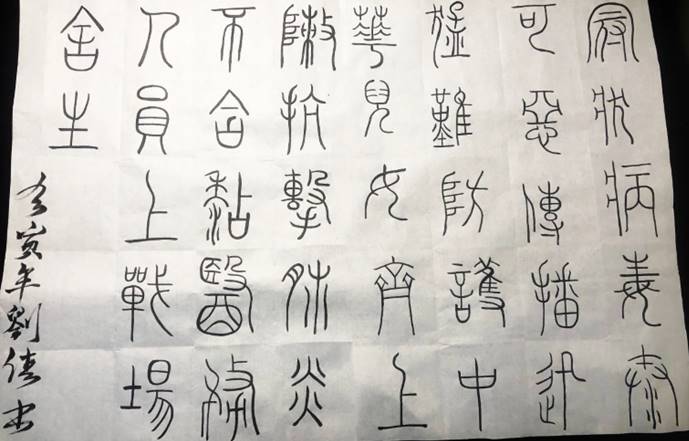 冠狀病毒
可惡傳播迅
猛難防護中
華兒女齊上
敶抗擊肺炎
不含黏醫務
人員上戰場
舍生
寅年劉書